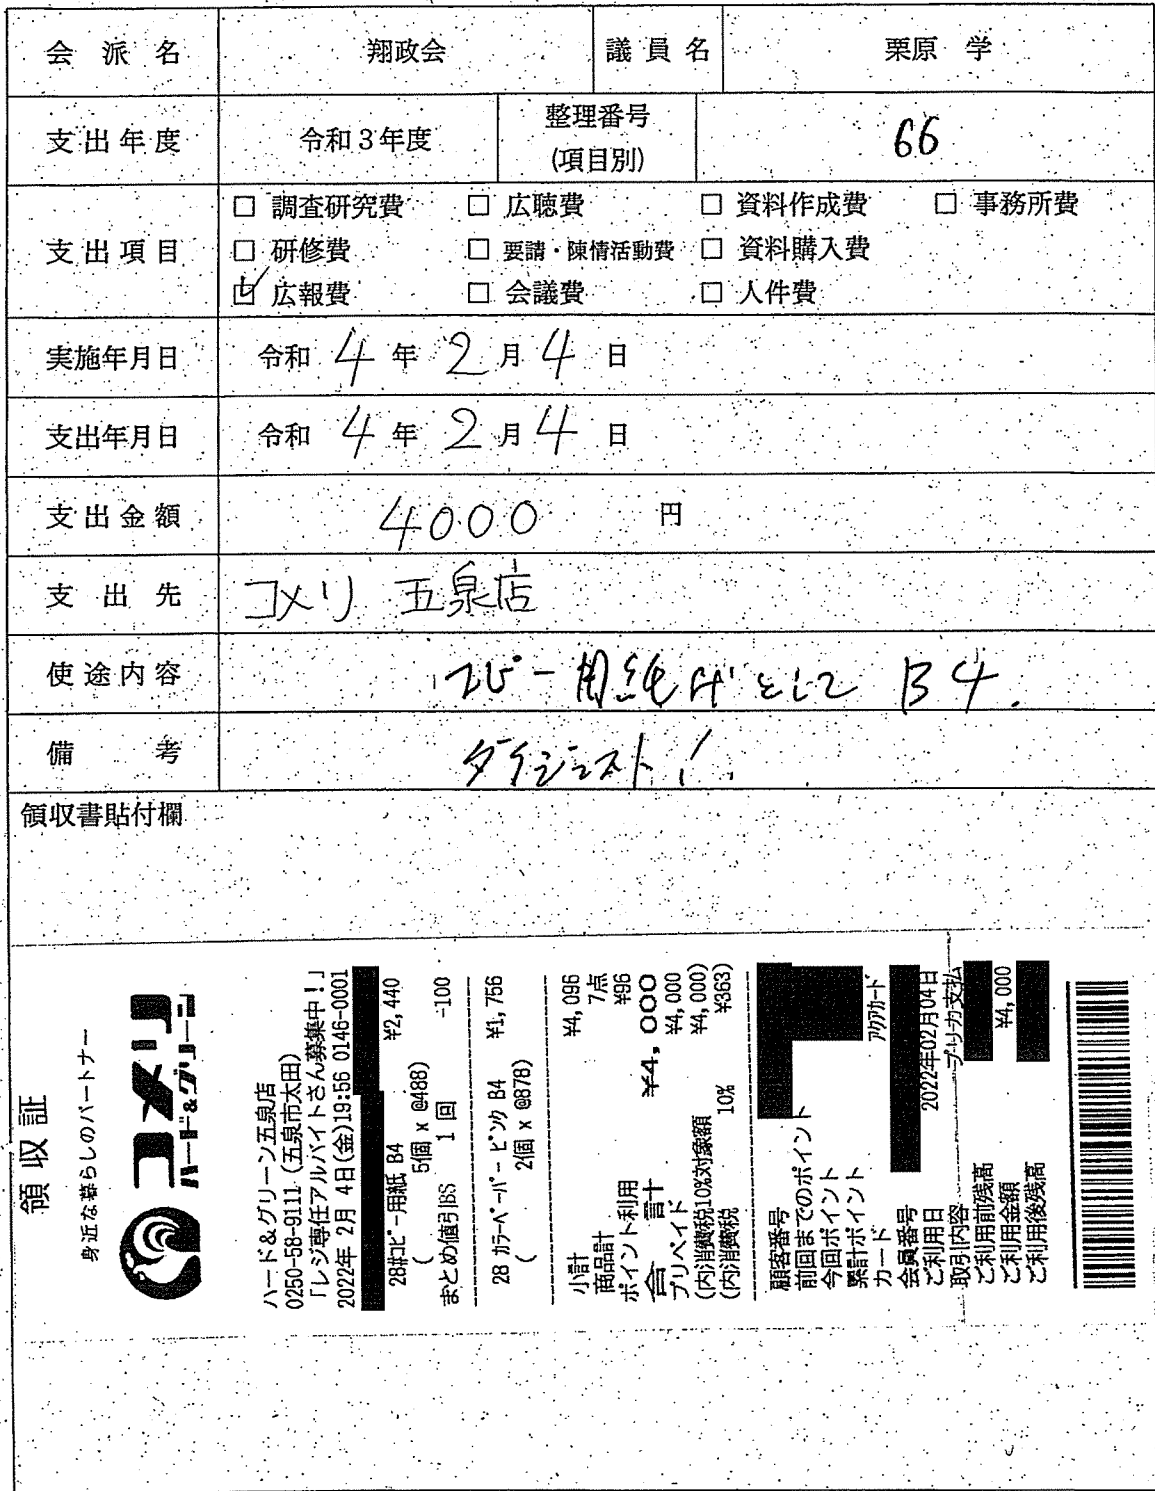 会派名 翔政会 議員名 栗原 学
支出年度 令和3年度 整理番号(項目別) 66
支出項目
□ 調査研究費 □ 広聴費 □ 資料作成費 □ 事務所費
□ 研修費 □ 要請・陳情活動費 □ 資料購入費
☑ 広報費 □ 会議費 □ 人件費
実施年月日 令和 4 年 2 月 4 日
支出年月日 令和 4 年 2 月 4 日
支出金額 4000 円
支出先 コメリ 五泉店
使途内容 コピー用紙代として B4.
備考 ダイジェスト!
領収書貼付欄
領収証
身近な暮らしのパートナー
コメリ
ハード&グリーン
ハード&グリーン五泉店
0250-58-9111 (五泉市太田)
「レジ専任アルバイトさん募集中!!」
2022年 2月 4日(金)19:56 0146-0001
28#コピー用紙 B4 ¥2,440
( 5個 x @488)
まとめ値引BS 1 回 -100
28 カラーペーパー ピンク B4 ¥1,756
( 2個 x @878)
小計 ¥4,096
商品計 7点
ポイント利用 ¥96
合 計 ¥4,000
プリペイド ¥4,000
(内消費税10%対象額 ¥4,000)
(内消費税 10% ¥363)
顧客番号
前回までのポイント
今回ポイント
累計ポイント
カード アクアカード
会員番号
ご利用日 2022年02月04日
取引内容 プリカ支払
ご利用前残高
ご利用金額 ¥4,000
ご利用後残高